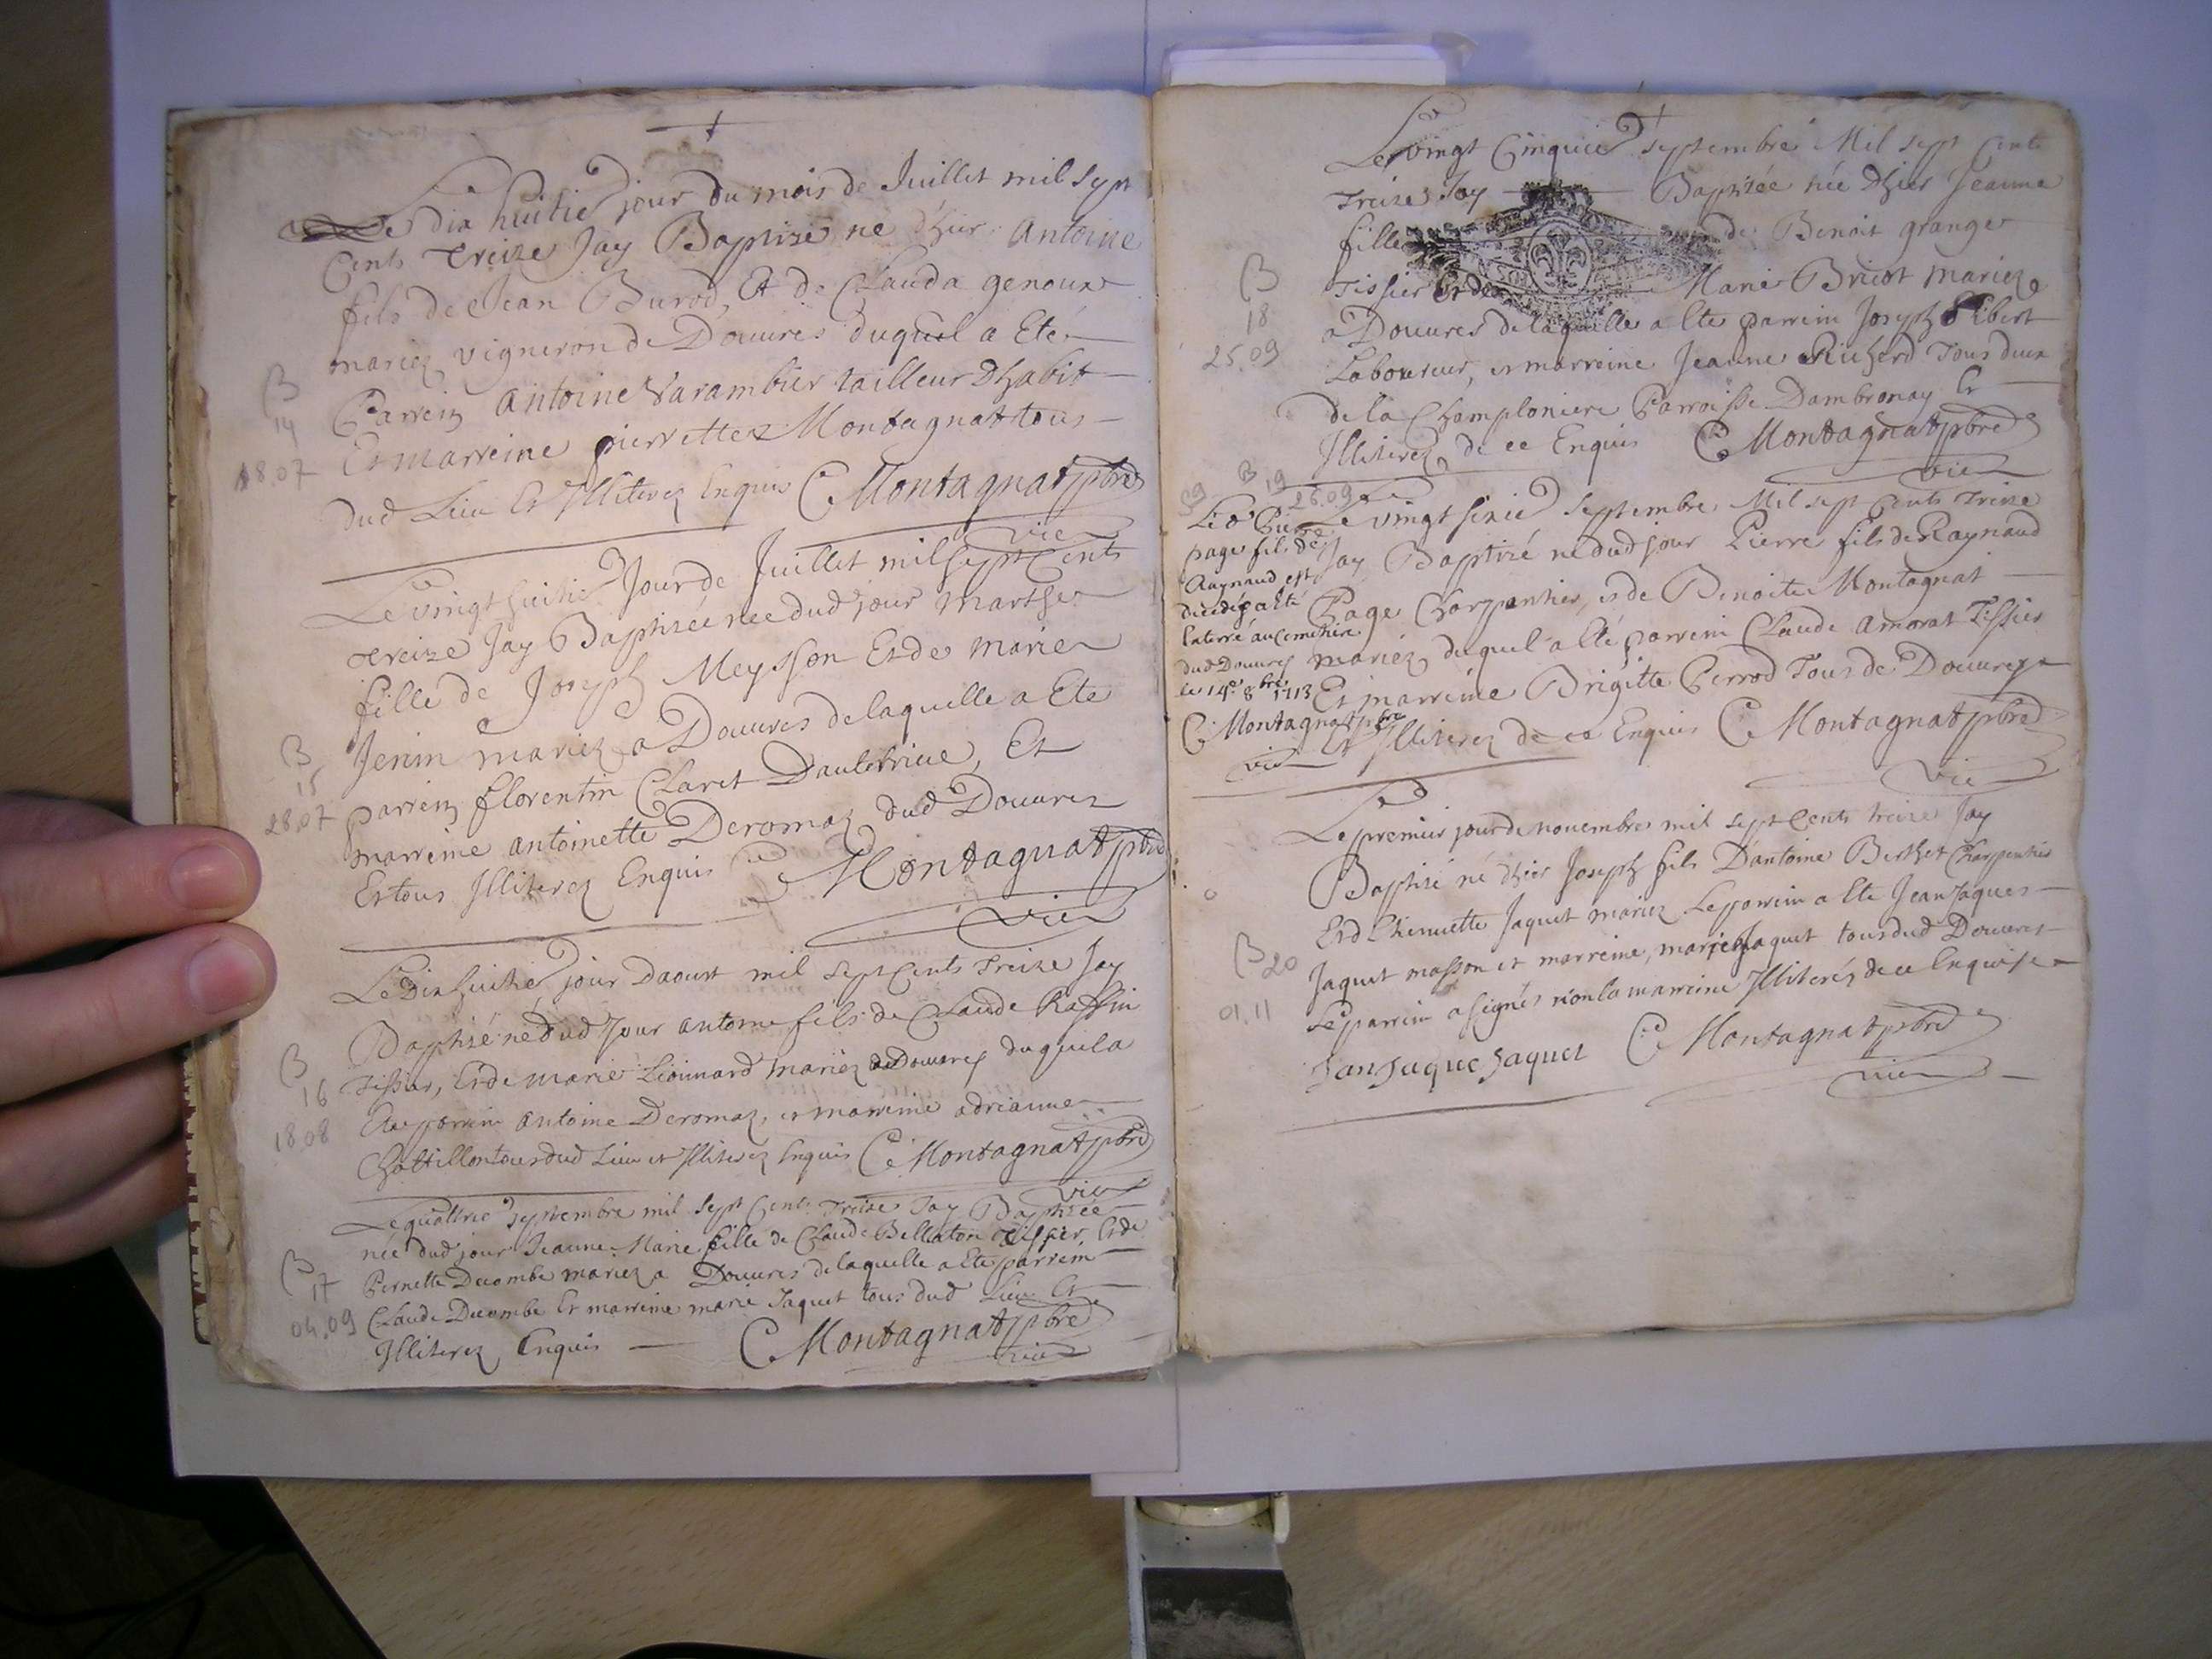 Le dix huitie jour du mois de Juillet mil sept
Cents treize Jay Baptizé né d'hier Antoine
fils de Jean Burod, Et de Clauda genoux
mariez vigneron de Douures duquel a Eté
B
14
18.07
Parrein Antoine Varambier tailleur d'habit
Et marreine pierrettez Montagnat tous
dud Lieu Et Illiterez Enquis C Montagnat pbre
vic
Le vingt huitie Jour de Juillet mil sept Cents
treize Jay Baptizée née dud jour Marthe
fille de Joseph Meysson Et de Marie
Jenin mariez a Douures de laquelle a Ete
B
15
28.07
parrein florentin Claret Daulbrive, Et
marreine antoinette Deromaz dud Douures
Et tous Illiterez Enquis C Montagnat pbre
vic
Le Dix huitie jour Daoust mil sept Cents treize Jay
Baptizé né dud Jour antoine fils de Claude Raffin
B
16
18.08
Tissier, Et de marie Leonnard mariez a Douures duquel a
Ete parrein Antoine Deromaz, et marreine adrianne
Chattillon tous dud Lieu et Illiterez Enquis C Montagnat pbre
vic
Le quattrie septembre mil sept Cents treize Jay Baptizée
née dud jour Jeanne Marie fille de Claude Bellaton Tissier, Et de
B
17
04.09
Pernette Decombe mariez a Douures de laquelle a Ete parrein
Claude Decombe Et marreine marie Jaquet tous dud Lieu Et
Illiterez Enquis C Montagnat pbre
vic
Le vingt Cinquie septembre Mil sept Cents
Treize Jay Baptizée née d'hier Jeanne
fille de Benoit grange
B
18
25.09
Tissier Et de Marie Bricot Mariez
a Douures de laquelle a Ete parrein Joseph Tibert
Laboureur, et marreine Jeanne Richerd Tous deux
de la Champloniere Parroisse Dambronay Et
Illiterez de ce Enquis C Montagnat pbre
vic
S9
B 19
26.09
Le d Pierre
page fils de
Raynaud est
decedé, a été
Enterré au cemetiere
dud Douures
le 14e 8bre 1713
C Montagnat pbre
vic
Le vingt sixie septembre Mil sept Cents Treize
Jay Baptizé né dud jour Pierre fils de Raynaud
Page Charpentier, et de Benoite Montagnat
mariez, duquel a Eté parrein Claude Amorat Tissier
Et marreine Brigitte Perrod Tous de Douures
Et Illiterez de ce Enquis C Montagnat pbre
vic
Le premier jour de nouembre mil sept Cents treize Jay
Baptizé né d'hier Joseph fils D'antoine Berthet Charpentier
B 20
01.11
Et d'Ethiennette Jaquet mariez Le parrein a Ete Jean Jaques
Jaquet masson et marreine, marie Jaquet tous dud Douures
Le parrein a signé, non la marreine Illiterés de ce Enquise
Jan Jaque Jaquet C Montagnat pbre
vic